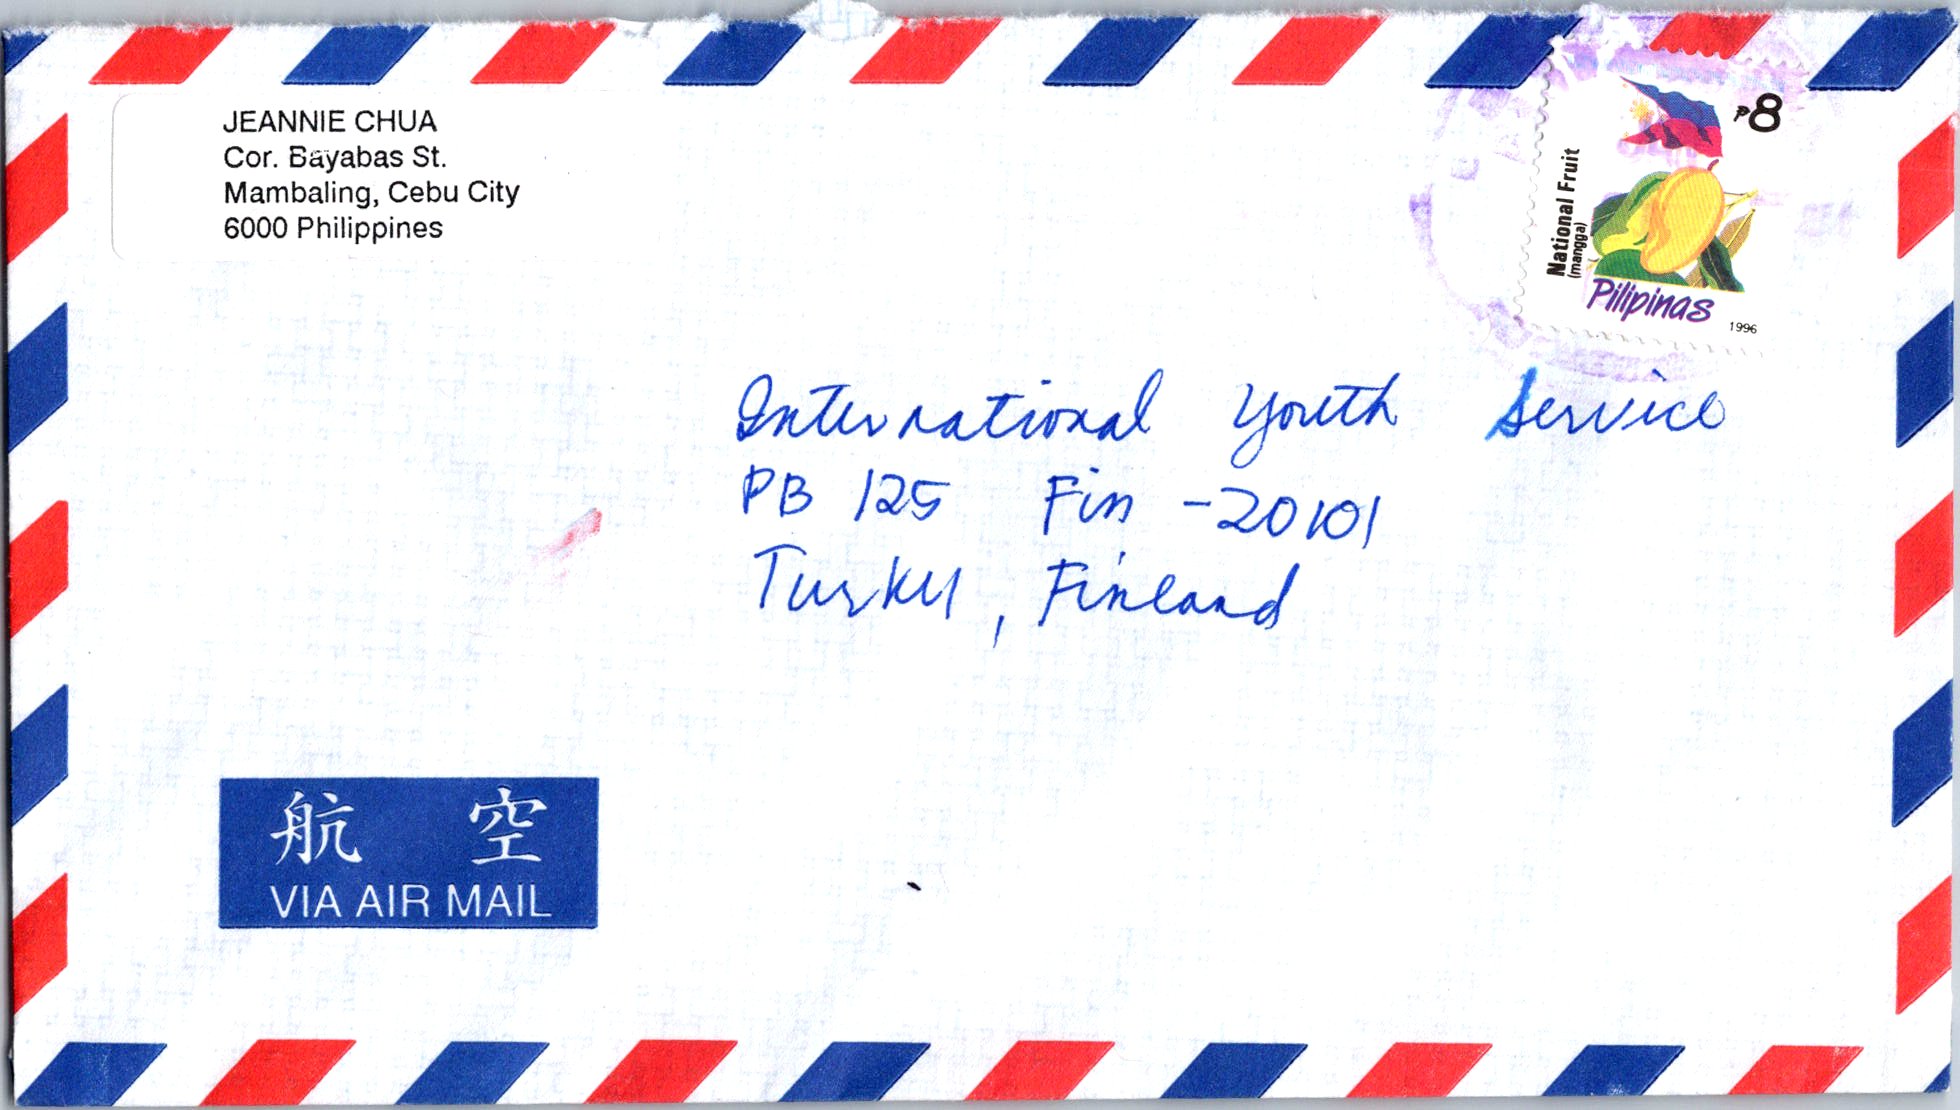 JEANNIE CHUA
Cor. Bayabas St.
Mambaling, Cebu City
6000 Philippines
₱8
National Fruit
(mangga)
Pilipinas
1996
International Youth Service
PB 125 Fin -20101
Turku, Finland
航 空
VIA AIR MAIL